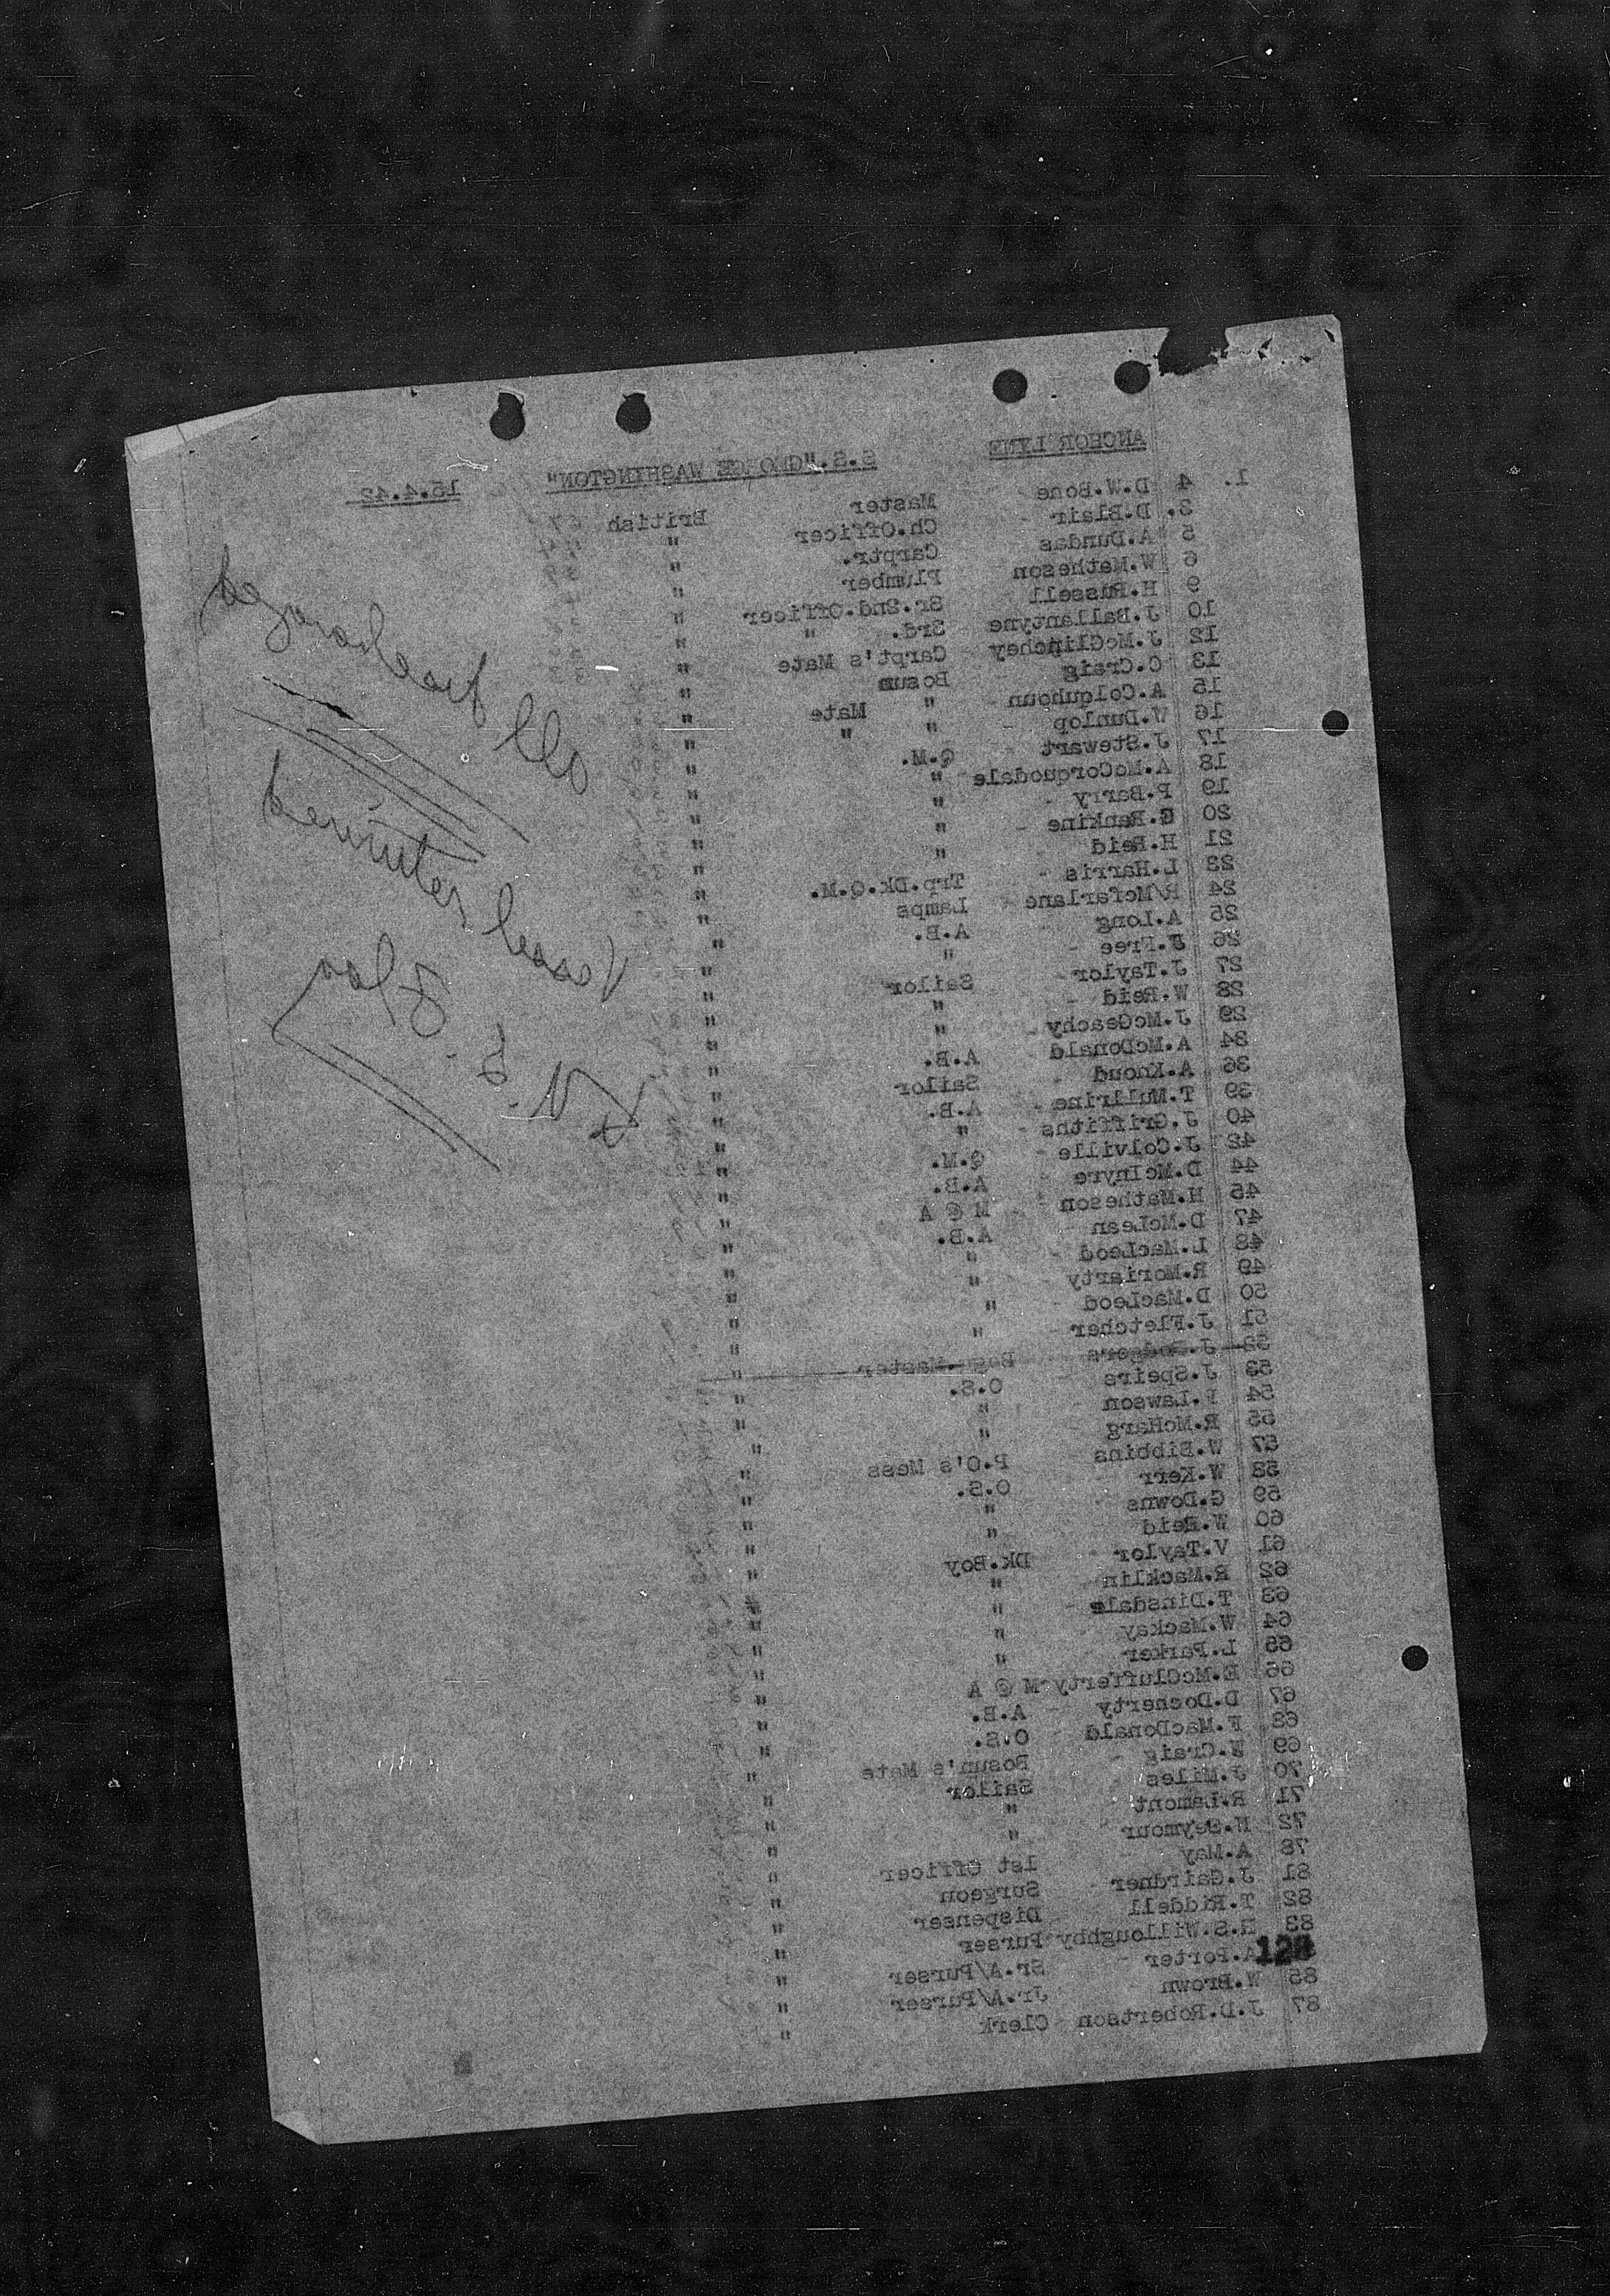 ANCHOR LINE S.S."GEORGE WASHINGTON" 15.4.42
1. 4 D.W.Bone - Master British
3. D.Blair - Ch.Officer "
5 A.Dundas Carptr. "
6 W.Matheson Plumber "
9 H.Russell - Sr.2nd.Officer "
10 J.Ballantyne 3rd. " "
12 J.McGlinchey - Carpt's Mate "
13 C.Craig Bosun "
15 A.Colquhoun - " Mate "
16 W.Dunlop - " " "
17 J.Stewart - Q.M. "
18 A.McCorquodale " "
19 P.Barry - " "
20 G.Rankine - " "
21 H.Reid " "
23 L.Harris - Trp.Dk.Q.M. "
24 R/Mcfarlane - Lamps "
25 A.Long A.B. "
26 F.Free - " "
27 J.Taylor - Sailor "
28 W.Reid - " "
29 J.McGeachy - " "
34 A.McDonald A.B. "
36 A.Knoud - Sailor "
39 T.Mullrine - A.B. "
40 J.Griffiths " "
42 J.Colville - Q.M. "
44 D.McInyre - A.B. "
45 H.Matheson - M @ A "
47 D.McLean A.B. "
48 L.MacLeod - " "
49 R.Moriarty " "
50 D.MacLeod - " "
51 J.Fletcher - " "
52 J.Rodgers Bage.Master
53 J.Speirs O.S. "
54 Lawson " "
55 R.McHarg " "
57 W.Bibbins P.O's Mess "
58 W.Kerr O.S. "
59 G.Downs " "
60 W.Reid " "
61 V.Taylor - Dk.Boy "
62 R.Macklin " "
63 T.Dinsdale - " "
64 W.Mackay " "
65 L.Parker " "
66 E.McClufferty M @ A "
67 D.Docherty - A.B. "
68 F.MacDonald - O.S. "
69 W.Craig - Bosun's Mate "
70 J.Miles Sailor "
71 R.Lamont " "
72 N.Seymour " "
78 A.May - 1st Officer "
81 J.Gairdner - Surgeon "
82 T.Riddell Dispenser "
83 H.S.Willoughby Purser "
A.Porter - Sr.A/Purser "
85 W.Brown - Jr.A/Purser "
87 J.D.Robertson Clerk "
all discharged
Vessel returned